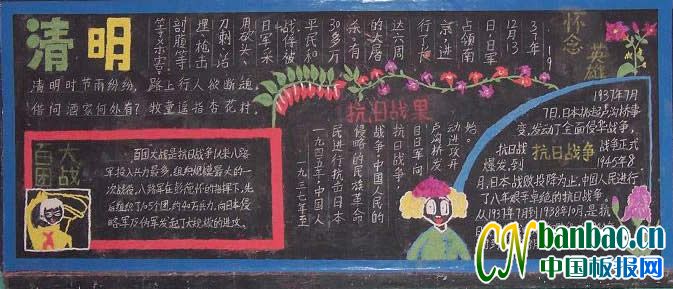 清明
清明时节雨纷纷，路上行人欲断魂。
借问酒家何处有？牧童遥指杏花村。
19
37年
12月
13日
日，日军
占领南
京，进
行了
达六周
的大屠
杀，有
30多万
平民和
战俘被
日军采
用砍头、
刀刺、活
埋、枪击
剖腹等
等杀害。
怀念
英雄
百团
大战
百团大战是抗日战争以来八路
军投入兵力最多，组织规模最大的一
次战役，八路军在彭德怀的指挥下，先
后组织了105个团，约40万兵力，向日本侵
略军及伪军发起了大规模的进攻。
抗日战果
一九三七年至
一九四五年，中国人
民进行抗击日本
侵略的民族革命
战争。中国人民的
抗日战争，
自日军向
卢沟桥发
动进攻开
始。
1937年7月
7日，日本挑起卢沟桥事
变，发动了全面侵华战争，
抗日战争
抗日战 战争正式
爆发，到 1945年8
月，日本战败投降为止，中国人民进行
了八年艰辛卓绝的抗日战争。
从1937年7月到1938年10月，是抗
CNbanbao.cn
中国板报网